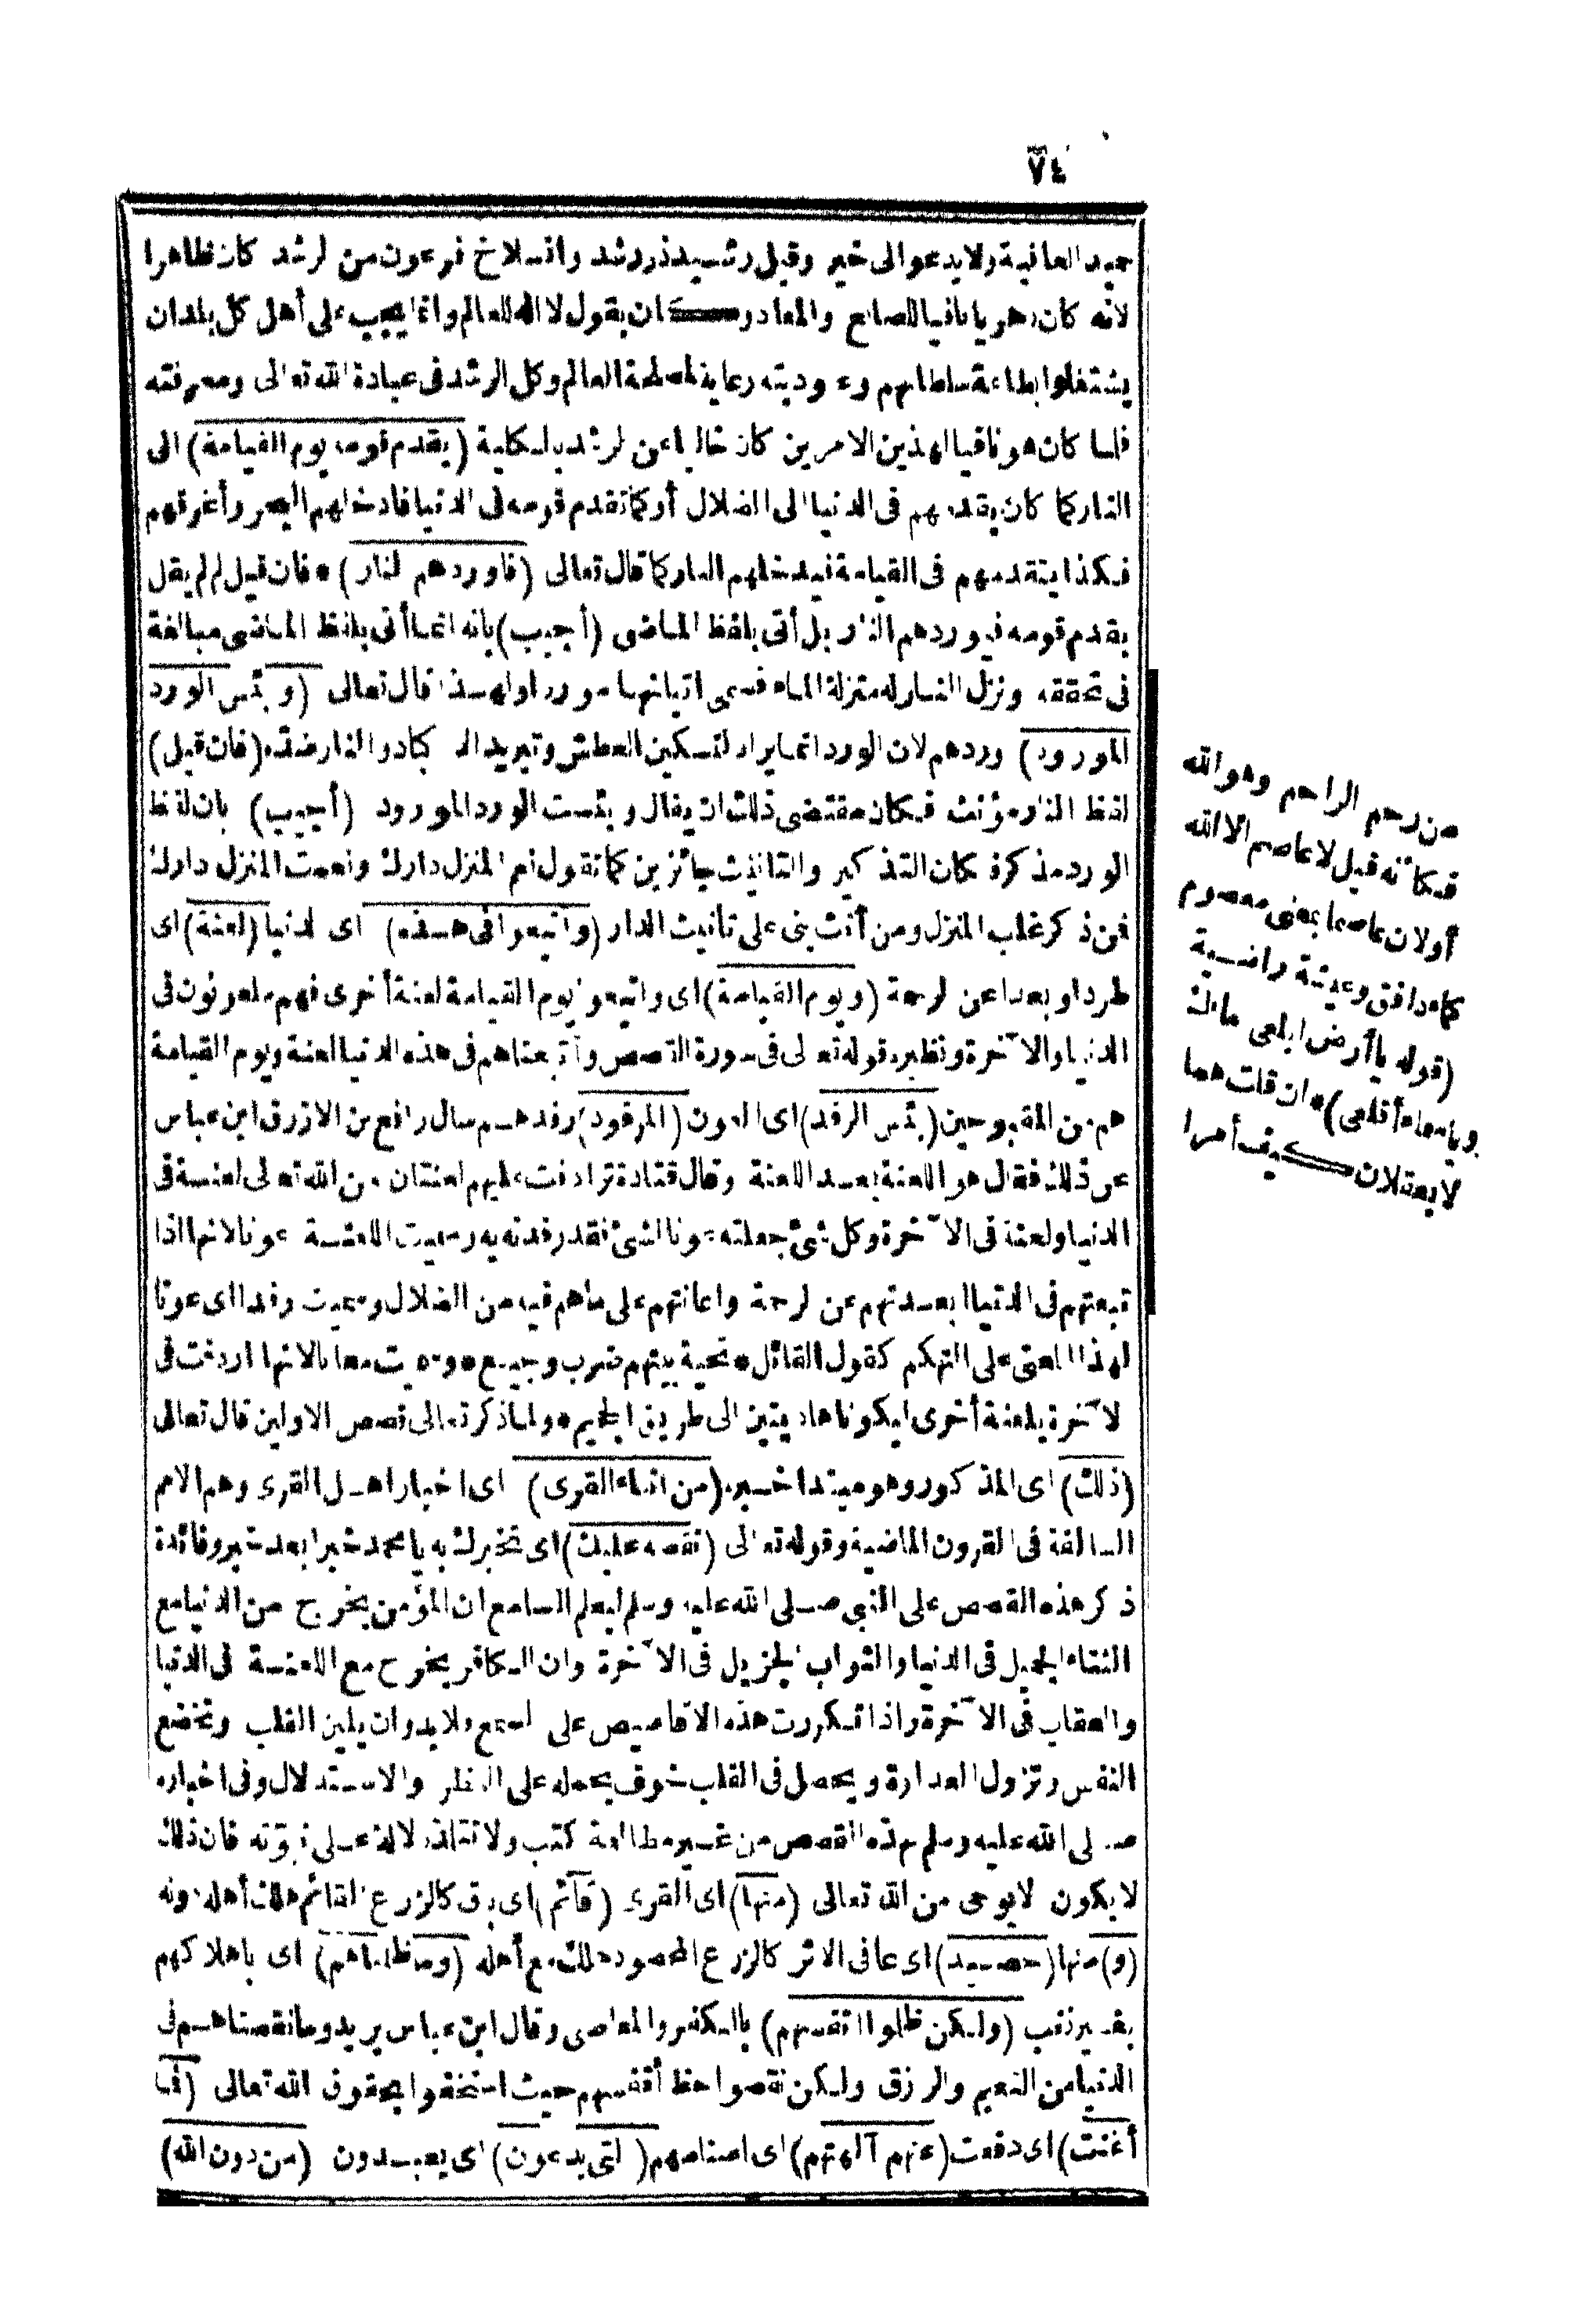 ٧٤
حميد العاقبة ولا يدعو الى خير وقيل رشيد ذو رشد وانسلاخ فرعون من الرشد كان ظاهرا
لانه كان دهريا نافيا للصانع والمعاد وكان يقول لا اله للعالم وانما يجب على أهل كل بلد ان
يشتغلوا بطاعة سلطانهم وعبوديته رعاية لمصلحة العالم وكل الرشد فى عبادة الله تعالى ومعرفته
فلما كان هو نافيا لهذين الامرين كان خاليا عن الرشد بالكلية (يقدم قومه يوم القيامة) الى
النار كما كان يقدمهم فى الدنيا الى الضلال أو كما تقدم قومه فى الدنيا فادخلهم البحر وأغرقهم
فكذا يتقدمهم فى القيامة فيدخلهم النار كما قال تعالى (فاوردهم النار) * فان قيل لم لم يقل
يقدم قومه فيوردهم النار بل أتى بلفظ الماضى (أجيب) بانه انما أتى بلفظ الماضى مبالغة
فى تحققه ونزل النار له منزلة الماء فسمى اتيانها موردا ولهذا قال تعالى (وبئس الورد
المورود) وردهم لان الورد انما يراد لتسكين العطش وتبريد الاكباد والنار ضده (فان قيل)
لفظ النار مؤنث فكان مقتضى ذلك ان يقال وبئست الورد المورود (أجيب) بان لفظ
الورد مذكر فكان التذكير والتانيث جائزين كما تقول نعم المنزل دارك ونعمت المنزل دارك
فمن ذكر غلب المنزل ومن أنث بنى على تانيث الدار (وأتبعوا فى هذه) اى الدنيا (لعنة) اى
طردا وبعدا عن الرحمة (ويوم القيامة) اى واتبعوا يوم القيامة لعنة أخرى فهم ملعونون فى
الدنيا والآخرة ونظيره قوله تعالى فى سورة القصص وأتبعناهم فى هذه الدنيا لعنة ويوم القيامة
هم من المقبوحين (بئس الرفد) اى العون (المرفود) رفدهم سال رافع بن الازرق ابن عباس
عن ذلك فقال هو اللعنة بعد اللعنة وقال قتادة ترادفت عليهم لعنتان من الله تعالى لعنة فى
الدنيا ولعنة فى الآخرة وكل شئ جعلته عونا لشئ فقد رفدته به وسميت اللعنة عونا لانها اذا
تبعتهم فى الدنيا ابعدتهم عن الرحمة واعانتهم على ما هم فيه من الضلال وسميت رفدا اى عونا
لهذا المعنى على التهكم كقول القائل * تحية بينهم ضرب وجيع * وسميت معانا لانها اردفت فى
الآخرة بلعنة أخرى ليكونا هاديتين الى طريق الجحيم * ولما ذكر تعالى قصص الاولين قال تعالى
(ذلك) اى المذكور وهو مبتدا خبره (من انباء القرى) اى اخبار اهل القرى وهم الامم
السالفة فى القرون الماضية وقوله تعالى (نقصه عليك) اى نخبرك به يا محمد خبرا بعد خبر وفائدة
ذكر هذه القصص على النبى صلى الله عليه وسلم ليعلم السامع ان المؤمن يخرج من الدنيا مع
الثناء الجميل فى الدنيا والثواب الجزيل فى الآخرة وان الكافر يخرج مع اللعنة فى الدنيا
والعقاب فى الآخرة واذا تكررت هذه الاقاصيص على السمع ولا بد وان يلين القلب وتخضع
النفس وتزول العداوة ويحصل فى القلب خوف يحمله على النظر والاستدلال وفى اخباره
صلى الله عليه وسلم بهذه القصص من غير مطالعة كتب ولا تتلمذ دلالة على نبوته فان ذلك
لا يكون الا بوحى من الله تعالى (منها) اى القرى (قائم) اى باق كالزرع القائم هلك أهله دونه
(و) منها (حصيد) اى عافى الاثر كالزرع المحصود هلك مع أهله (وما ظلمناهم) اى باهلاكهم
بغير ذنب (ولكن ظلموا انفسهم) بالكفر والمعاصى وقال ابن عباس يريد وما نقصناهم فى
الدنيا من النعيم والرزق ولكن نقصوا حظ أنفسهم حيث استخفوا بحقوق الله تعالى (فما
أغنت) اى دفعت (عنهم آلهتهم) اى اصنامهم (التى يدعون) اى يعبدون (من دون الله)
من رحم الراحم وهو الله
فكأنه قيل لا عاصم الا الله
أو لان عاصما بمعنى معصوم
كماء دافق وعيشة راضية
(قوله يا أرض ابلعى ماءك
ويا سماء أقلعى) * ان قلت هما
لا يعقلان كيف أمرا